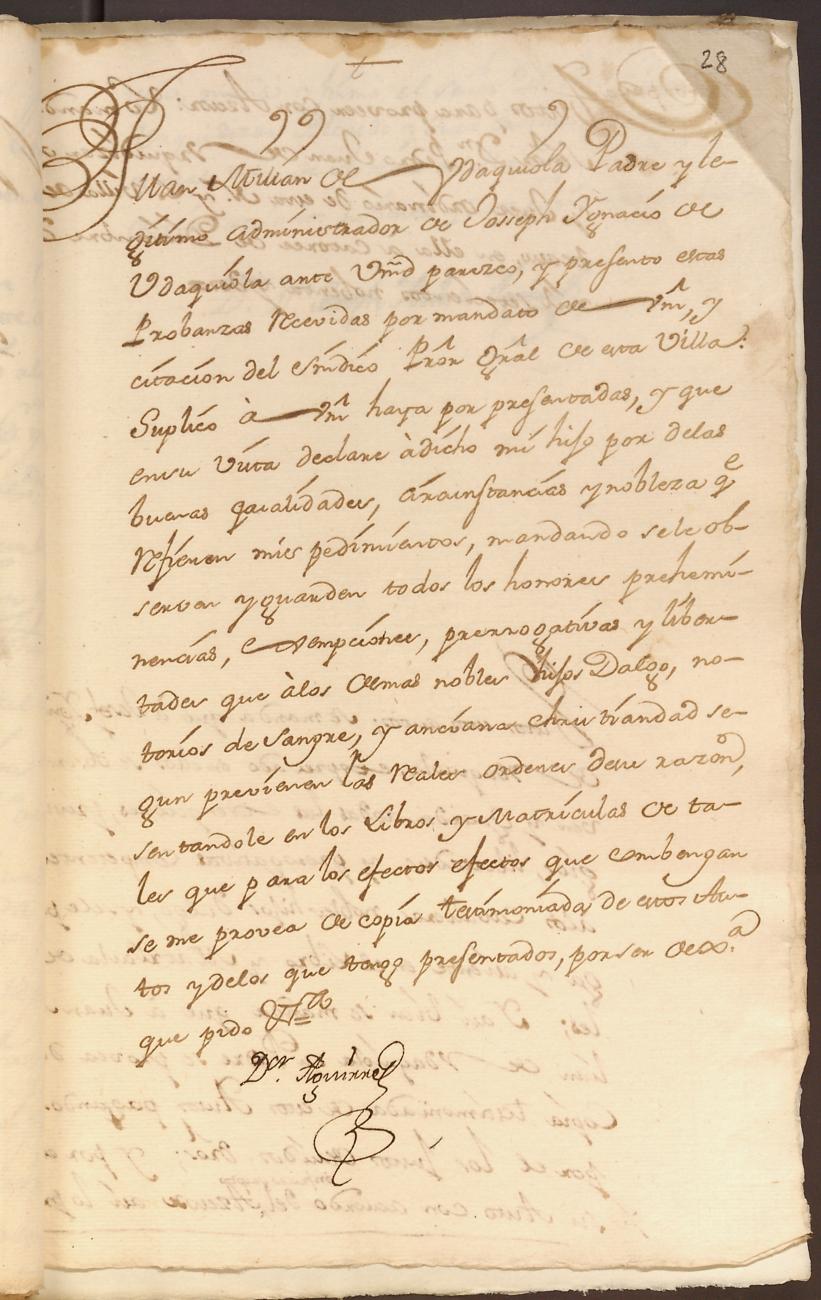 28
Juan Millan de Vdaquiola Padre y le-
gitimo administrador de Josseph Ygnacio de
Vdaquiola ante Vmd parezco, y presento estas
Probanzas Recevidas por mandato de Vm, y
citacion del Sindico Pror Gral de esta Villa:
Suplico à Vm haya por presentadas, y que
en su Vista declare à dicho mi hijo por de las
buenas qualidades, circunstancias y nobleza qe
Refieren mis pedimientos, mandando se le ob-
serven y guarden todos los honores prehemi-
nencias, exempciones, prerrogativas y liber-
tades que à los demas nobles hijos Dalgo, no-
torios de Sangre, y anciana christiandad se-
gun previenen las Reales ordenes de su razon,
sentandole en los Libros y Matriculas de ta-
les que para los efectos efectos que combengan
se me provea de copia testimoniada de estos Au-
tos y de los que tengo presentados, por ser de Xa.
que pido
Dor. Aguirre